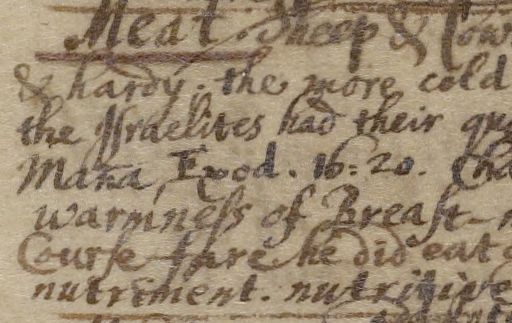 Meat. Sheep & Cow
& hardy. the more cold
the Israelites had their qu
Mana, Exod. 16: 20.
warmness of Breast-
Course fare he did eat
nutriment. nutritive